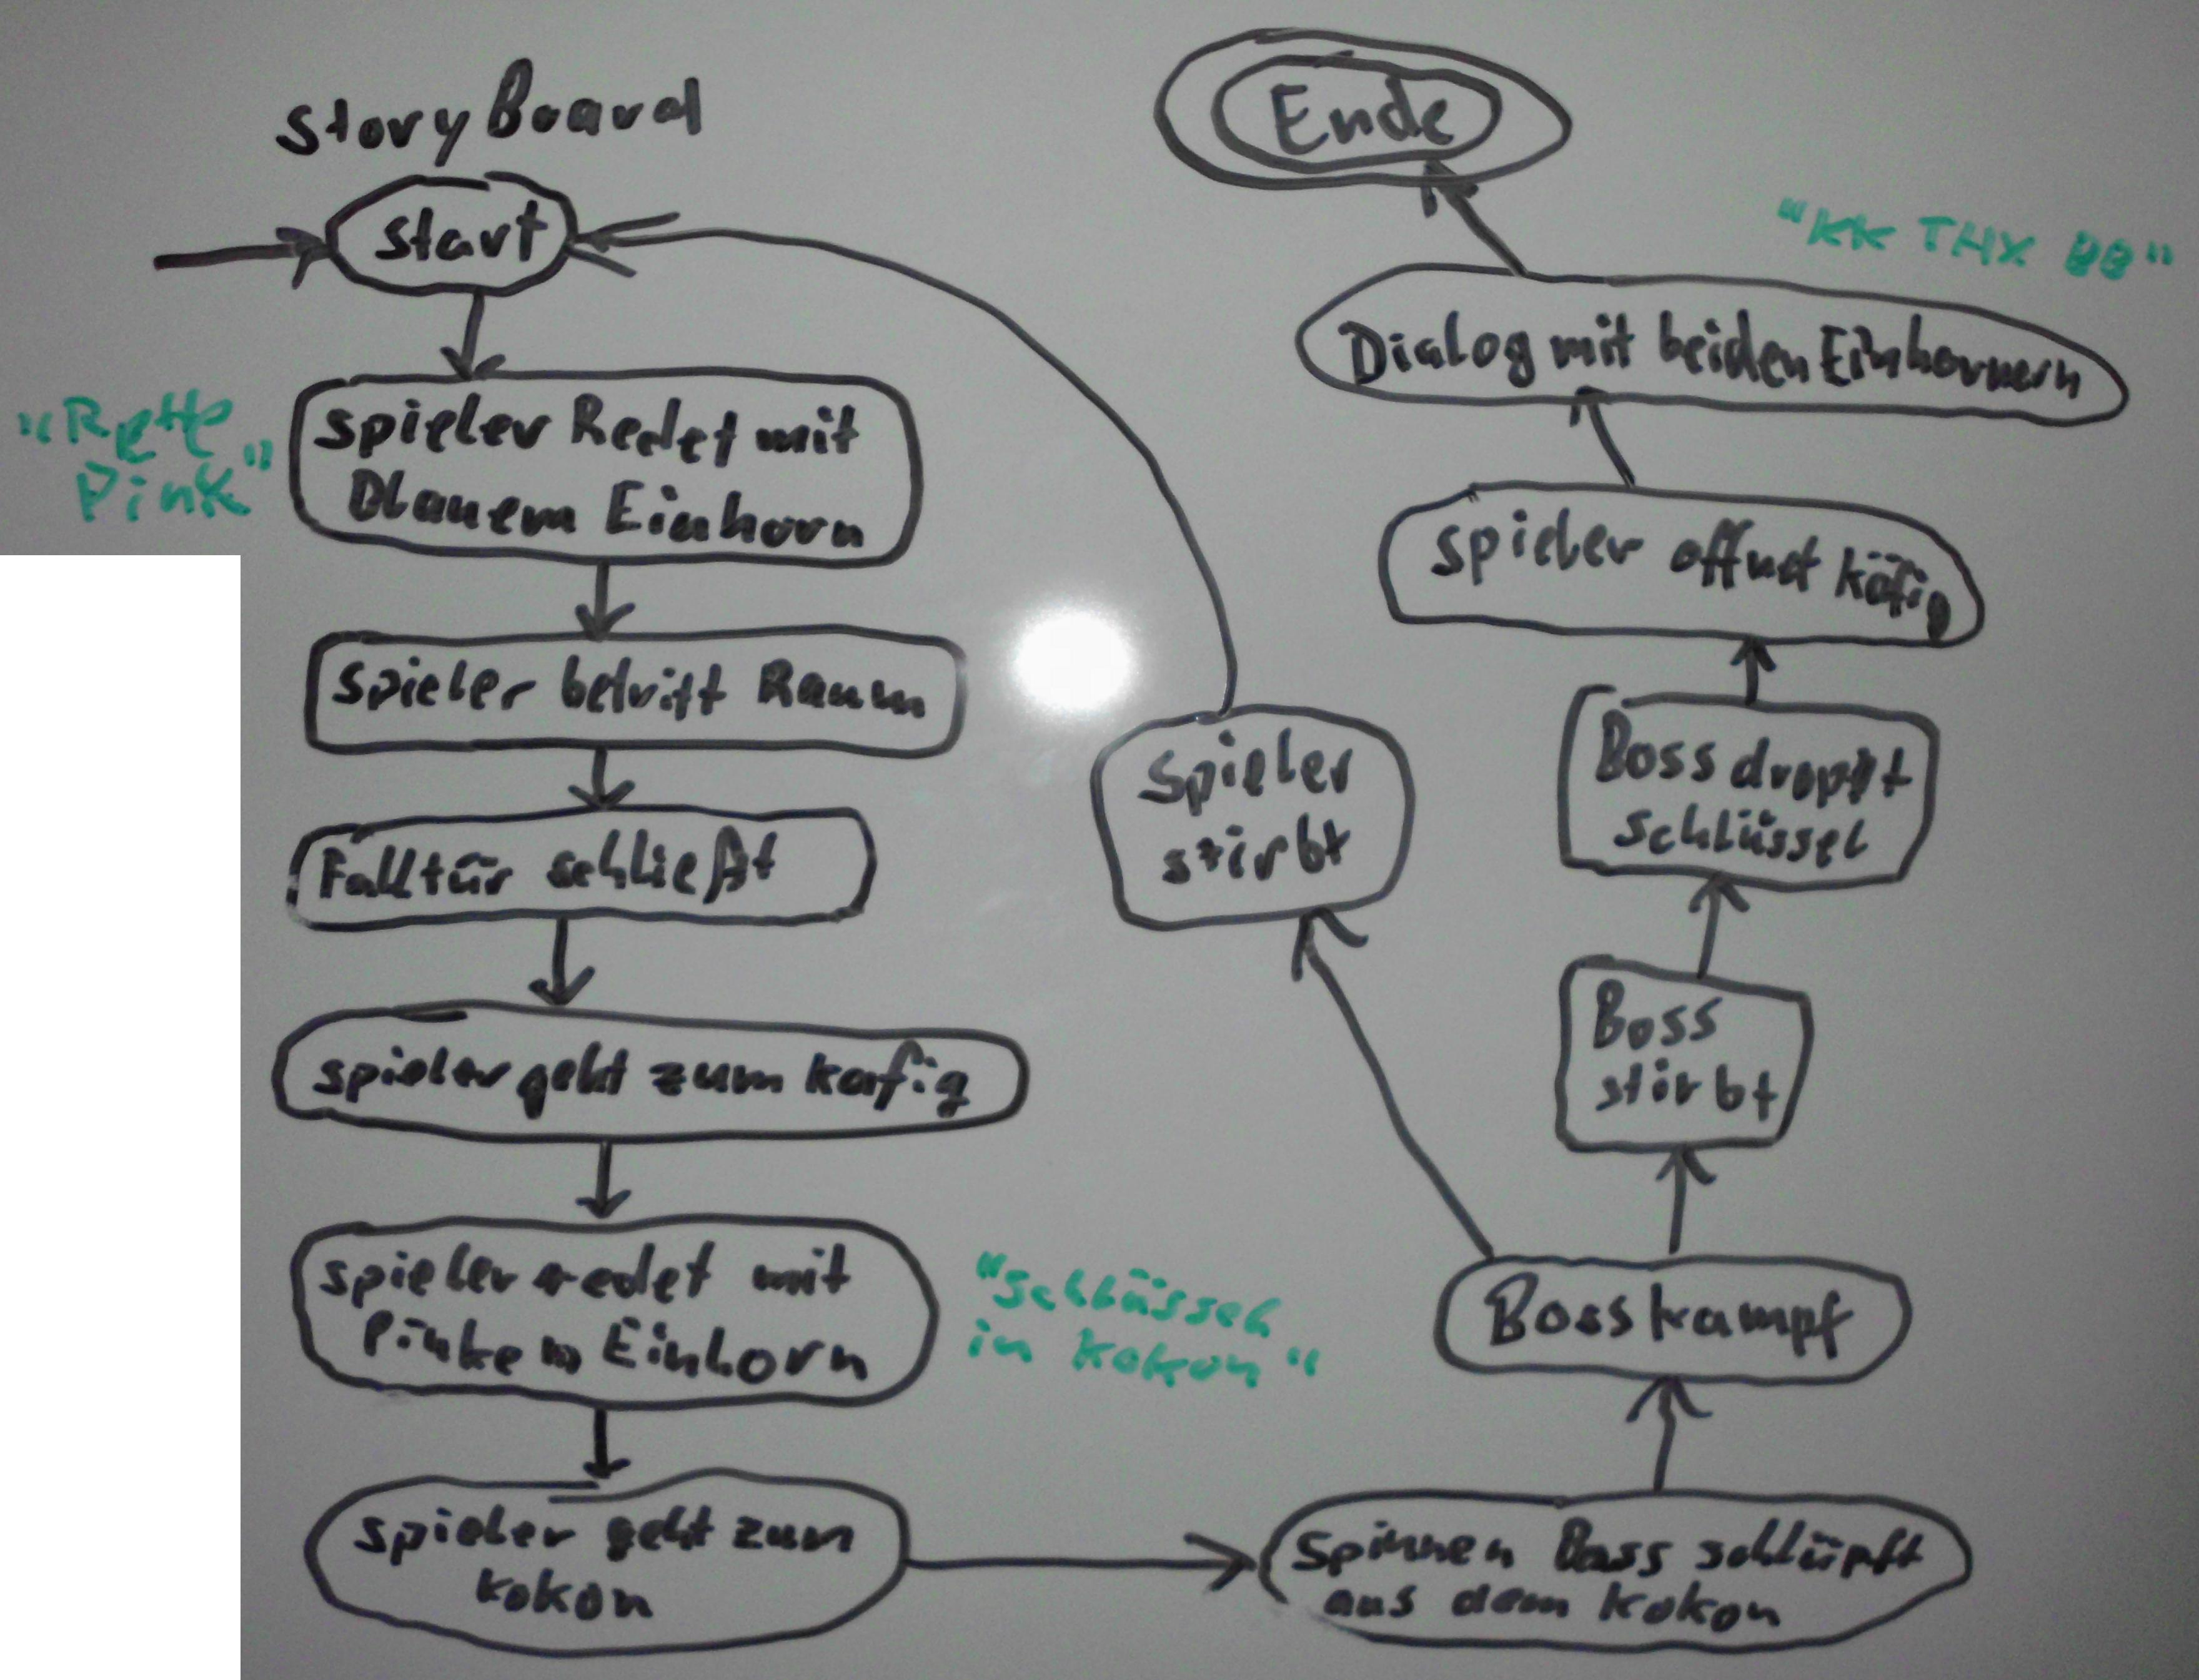 StoryBoard
start
"Rette
Pink"
spieler Redet mit
Blauem Einhorn
spieler betritt Raum
Falltür schließt
spieler geht zum kafig
spieler redet mit
Pinkem Einhorn
"schlüssel
in kokon"
spieler geht zum
kokon
spinnen Boss schlüpft
aus dem kokon
Bosskampf
Spieler
stirbt
Boss
stirbt
Boss droppt
schlüssel
spieler offnet käfig
Dialog mit beiden Einhornern
"KK THX BB"
Ende